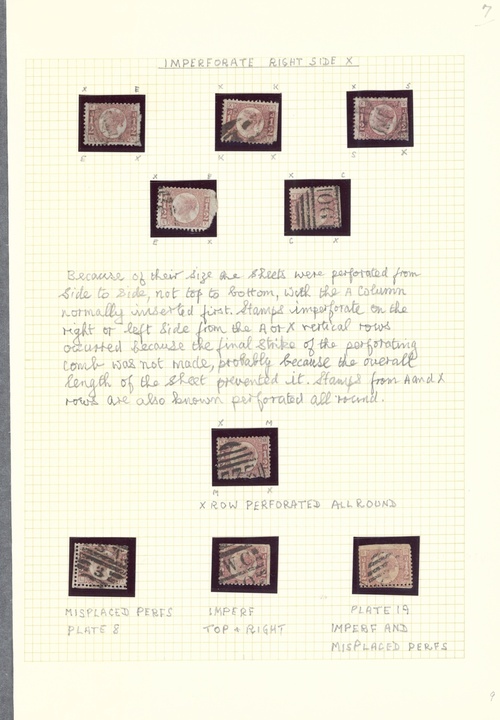 7
IMPERFORATE RIGHT SIDE X
X E X K X S
E X K X S X
X E X C
E X C X
Because of their size the sheets were perforated from
Side to Side, not top to bottom, with the A column
normally inserted first. Stamps imperforate on the
right or left side from the A or X vertical rows
occurred because the final strike of the perforating
comb was not made, probably because the overall
length of the sheet prevented it. Stamps from A and X
rows are also known perforated all round.
X M
M X
X ROW PERFORATED ALL ROUND
MISPLACED PERFS IMPERF PLATE 19
PLATE 8 TOP + RIGHT IMPERF AND
MISPLACED PERFS
9